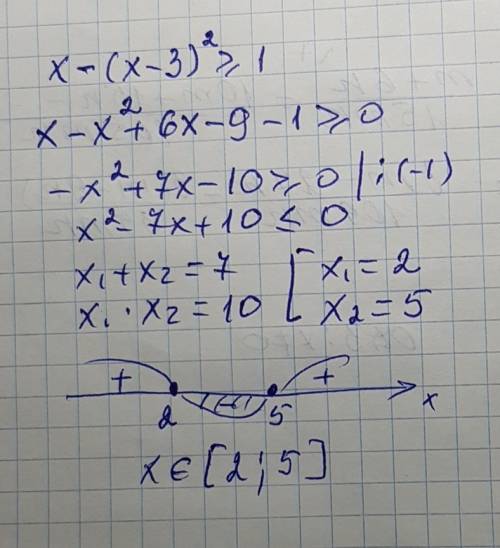 x - (x-3)² ≥ 1
x - x² + 6x - 9 - 1 ≥ 0
- x² + 7x - 10 ≥ 0 | : (-1)
x² - 7x + 10 ≤ 0
x₁ + x₂ = 7 [ x₁ = 2
x₁ · x₂ = 10 [ x₂ = 5
+ (-) +
2 5 x
x ∈ [2; 5]